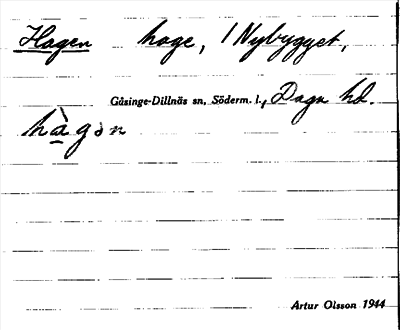 Hagen hage, 1 Nybygget,
Gåsinge-Dillnäs sn, Söderm. l., Daga hd.
hàgən
Artur Olsson 1944